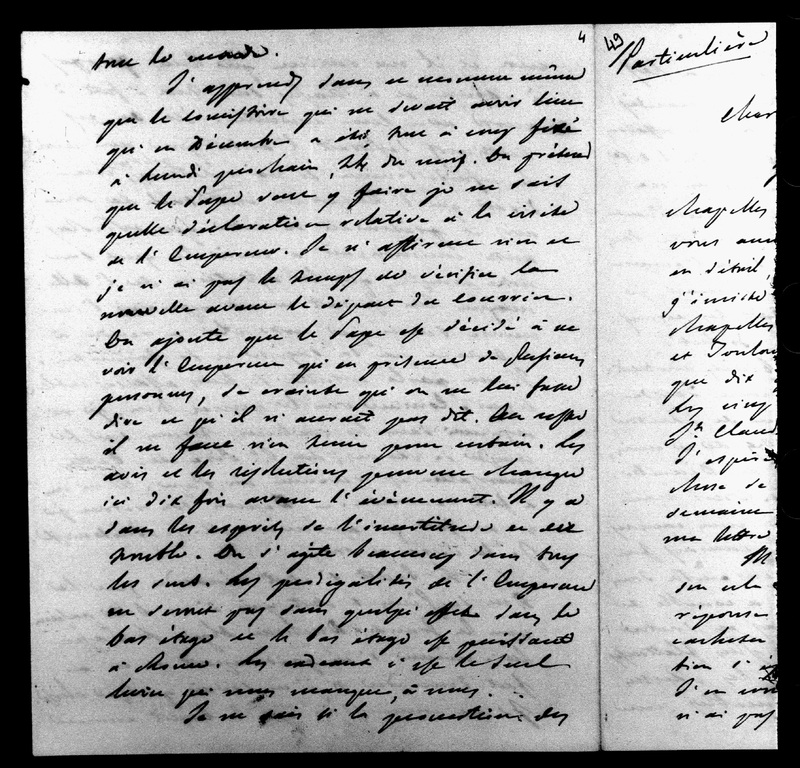 4
tout le monde.
J'apprends dans ce moment même
que le consistoire qui ne devait avoir lieu
qu'en Décembre a été tout à coup fixé
à lundi prochain, 24 du mois. On prétend
que le Pape veut y faire je ne sais
quelle déclaration relative à la visite
de l'Empereur. Je n'affirme rien et
je n'ai pas le temps de vérifier la
nouvelle avant le départ du courrier.
On ajoute que le Pape est décidé à ne
voir l'Empereur qu'en présence de plusieurs
personnes, de crainte qu'on ne lui fasse
dire ce qu'il n'aurait pas dit. Au reste
il ne faut rien tenir pour certain. Les
avis et les résolutions peuvent changer
ici dix fois avant l'évènement. Il y a
dans les esprits de l'incertitude et du
trouble. On s'agite beaucoup dans tous
les sens. Les prodigalités de l'Empereur
ne seront pas sans quelque effet dans le
bas étage et le bas étage est puissant
à Rome. Les cadeaux c'est le seul
levier qui nous manque, à nous.
Je ne sais si la protection des
49
Particulière
Cher
chapelles
vous
en détail,
j'insiste
chapelles
et Toulou
que dix
les cinq
St Claud
J'espère
chose de
semaine
ma lettre
M
son
réponse
cacheter
tion
J'en
n'ai pas